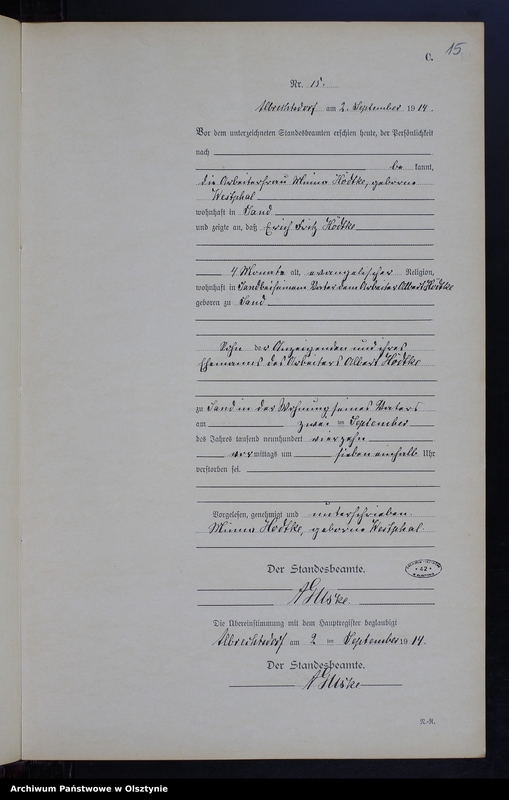 15
C.
Nr. 15.
Albrechtsdorf am 2. September 1914.
Vor dem unterzeichneten Standesbeamten erschien heute, der Persönlichkeit
nach
be kannt,
die Arbeiterfrau Minna Hödtke, geborene
Westphal
wohnhaft in Sand
und zeigte an, daß Erich Fritz Hödtke
4 Monate alt, evangelischer Religion,
wohnhaft in Sand bei seinem Vater dem Arbeiter Albert Hödtke
geboren zu Sand
Sohn der Anzeigenden und ihres
Ehemanns des Arbeiters Albert Hödtke
zu Sand in der Wohnung seines Vaters
am zwei ten September
des Jahres tausend neunhundert vierzehn
vor mittags um sieben einhalb Uhr
verstorben sei.
Vorgelesen, genehmigt und unterschrieben.
Minna Hödtke, geborene Westphal.
Der Standesbeamte.
42
Die Übereinstimmung mit dem Hauptregister beglaubigt
Albrechtsdorf am 2 ten September 1914.
Der Standesbeamte.
N.-R.
Archiwum Państwowe w Olsztynie